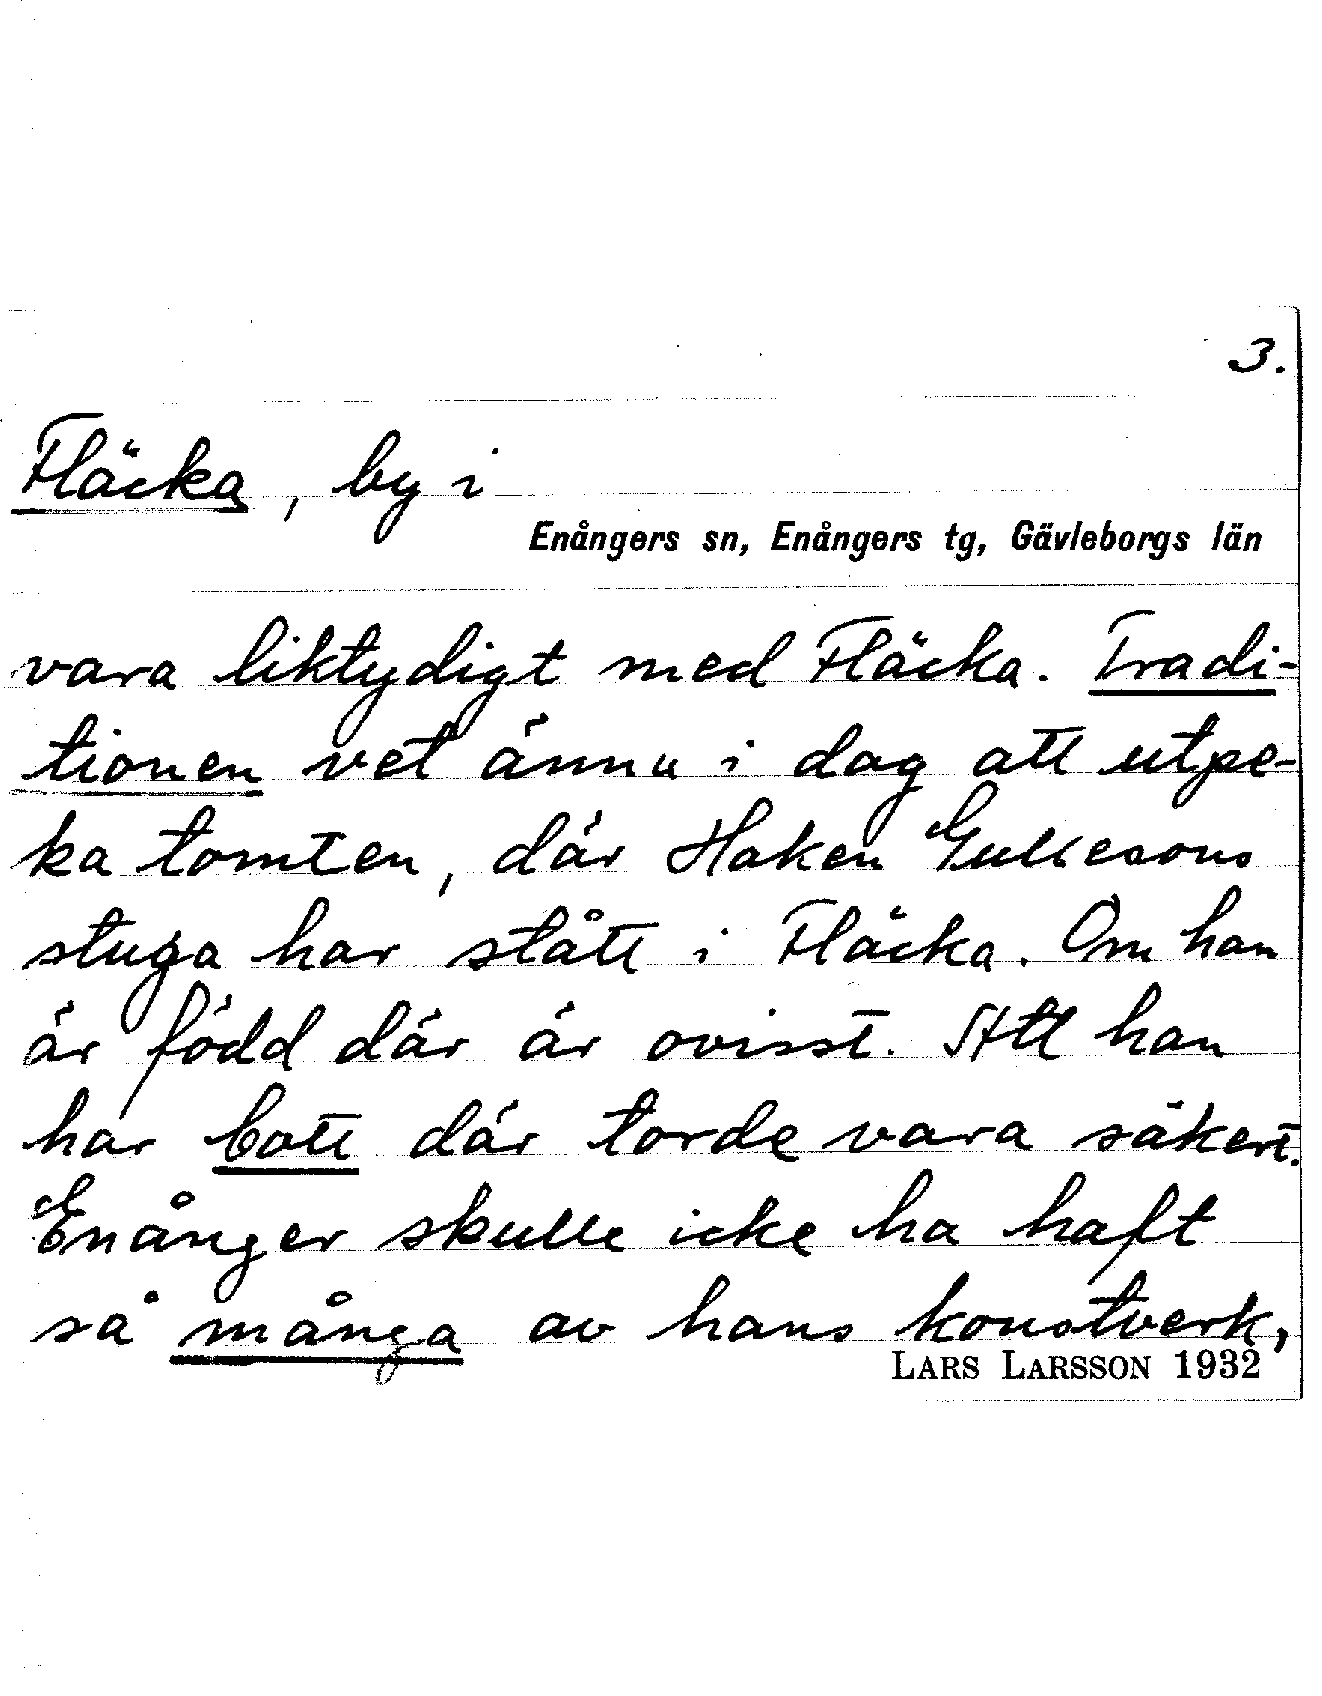 3.
Fläcka, by i
Enångers sn, Enångers tg, Gävleborgs län
vara liktydigt med Fläcka. Tradi-
tionen vet ännu i dag att utpe-
ka tomten, där Haken Gullesons
stuga har stått i Fläcka. Om han
är född där är ovisst. Att han
har bott där torde vara säkert.
Enånger skulle icke ha haft
så många av hans konstverk,
LARS LARSSON 1932